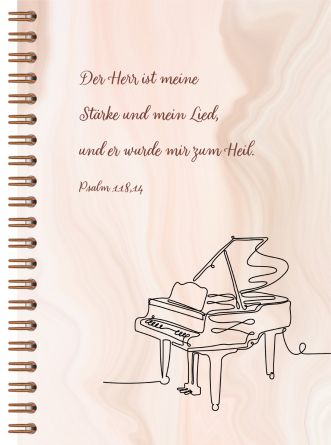 Der Herr ist meine
Stärke und mein Lied,
und er wurde mir zum Heil.
Psalm 118,14